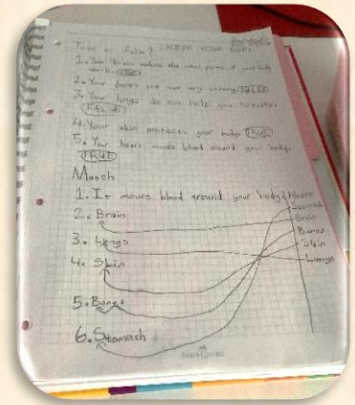 True or False? INSIDE YOUR BODY
1. Your Brain controls the other parts of your body
TRUE
2. Your bones are not very strong. FALSE
3. Your lungs do not help you breathe.
FALSE
4. Your skin protects your body. TRUE
5. Your heart moves blood around your body.
TRUE
Match
1. It moves blood around your body. Heart
Stomach
2. Brain
Brain
3. Lungs
Bones
4. Skin
Skin
Lungs
5. Bones
6. Stomach